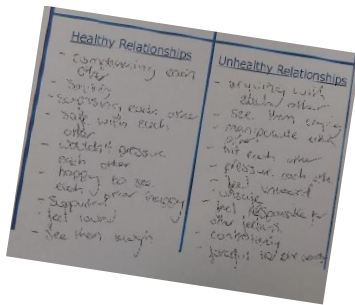 Healthy Relationships
- complimenting each
other
- surprising each other
- safe with each
other
- wouldn't pressure
each other
- happy to see
each other happy
- supportive
- feel loved
- See them
Unhealthy Relationships
- arguing with
each other
- see them
- manipulate each
other
- hit each other
- pressure each other
- feel
- unsafe
- feel responsible for
other feelings
- controlling